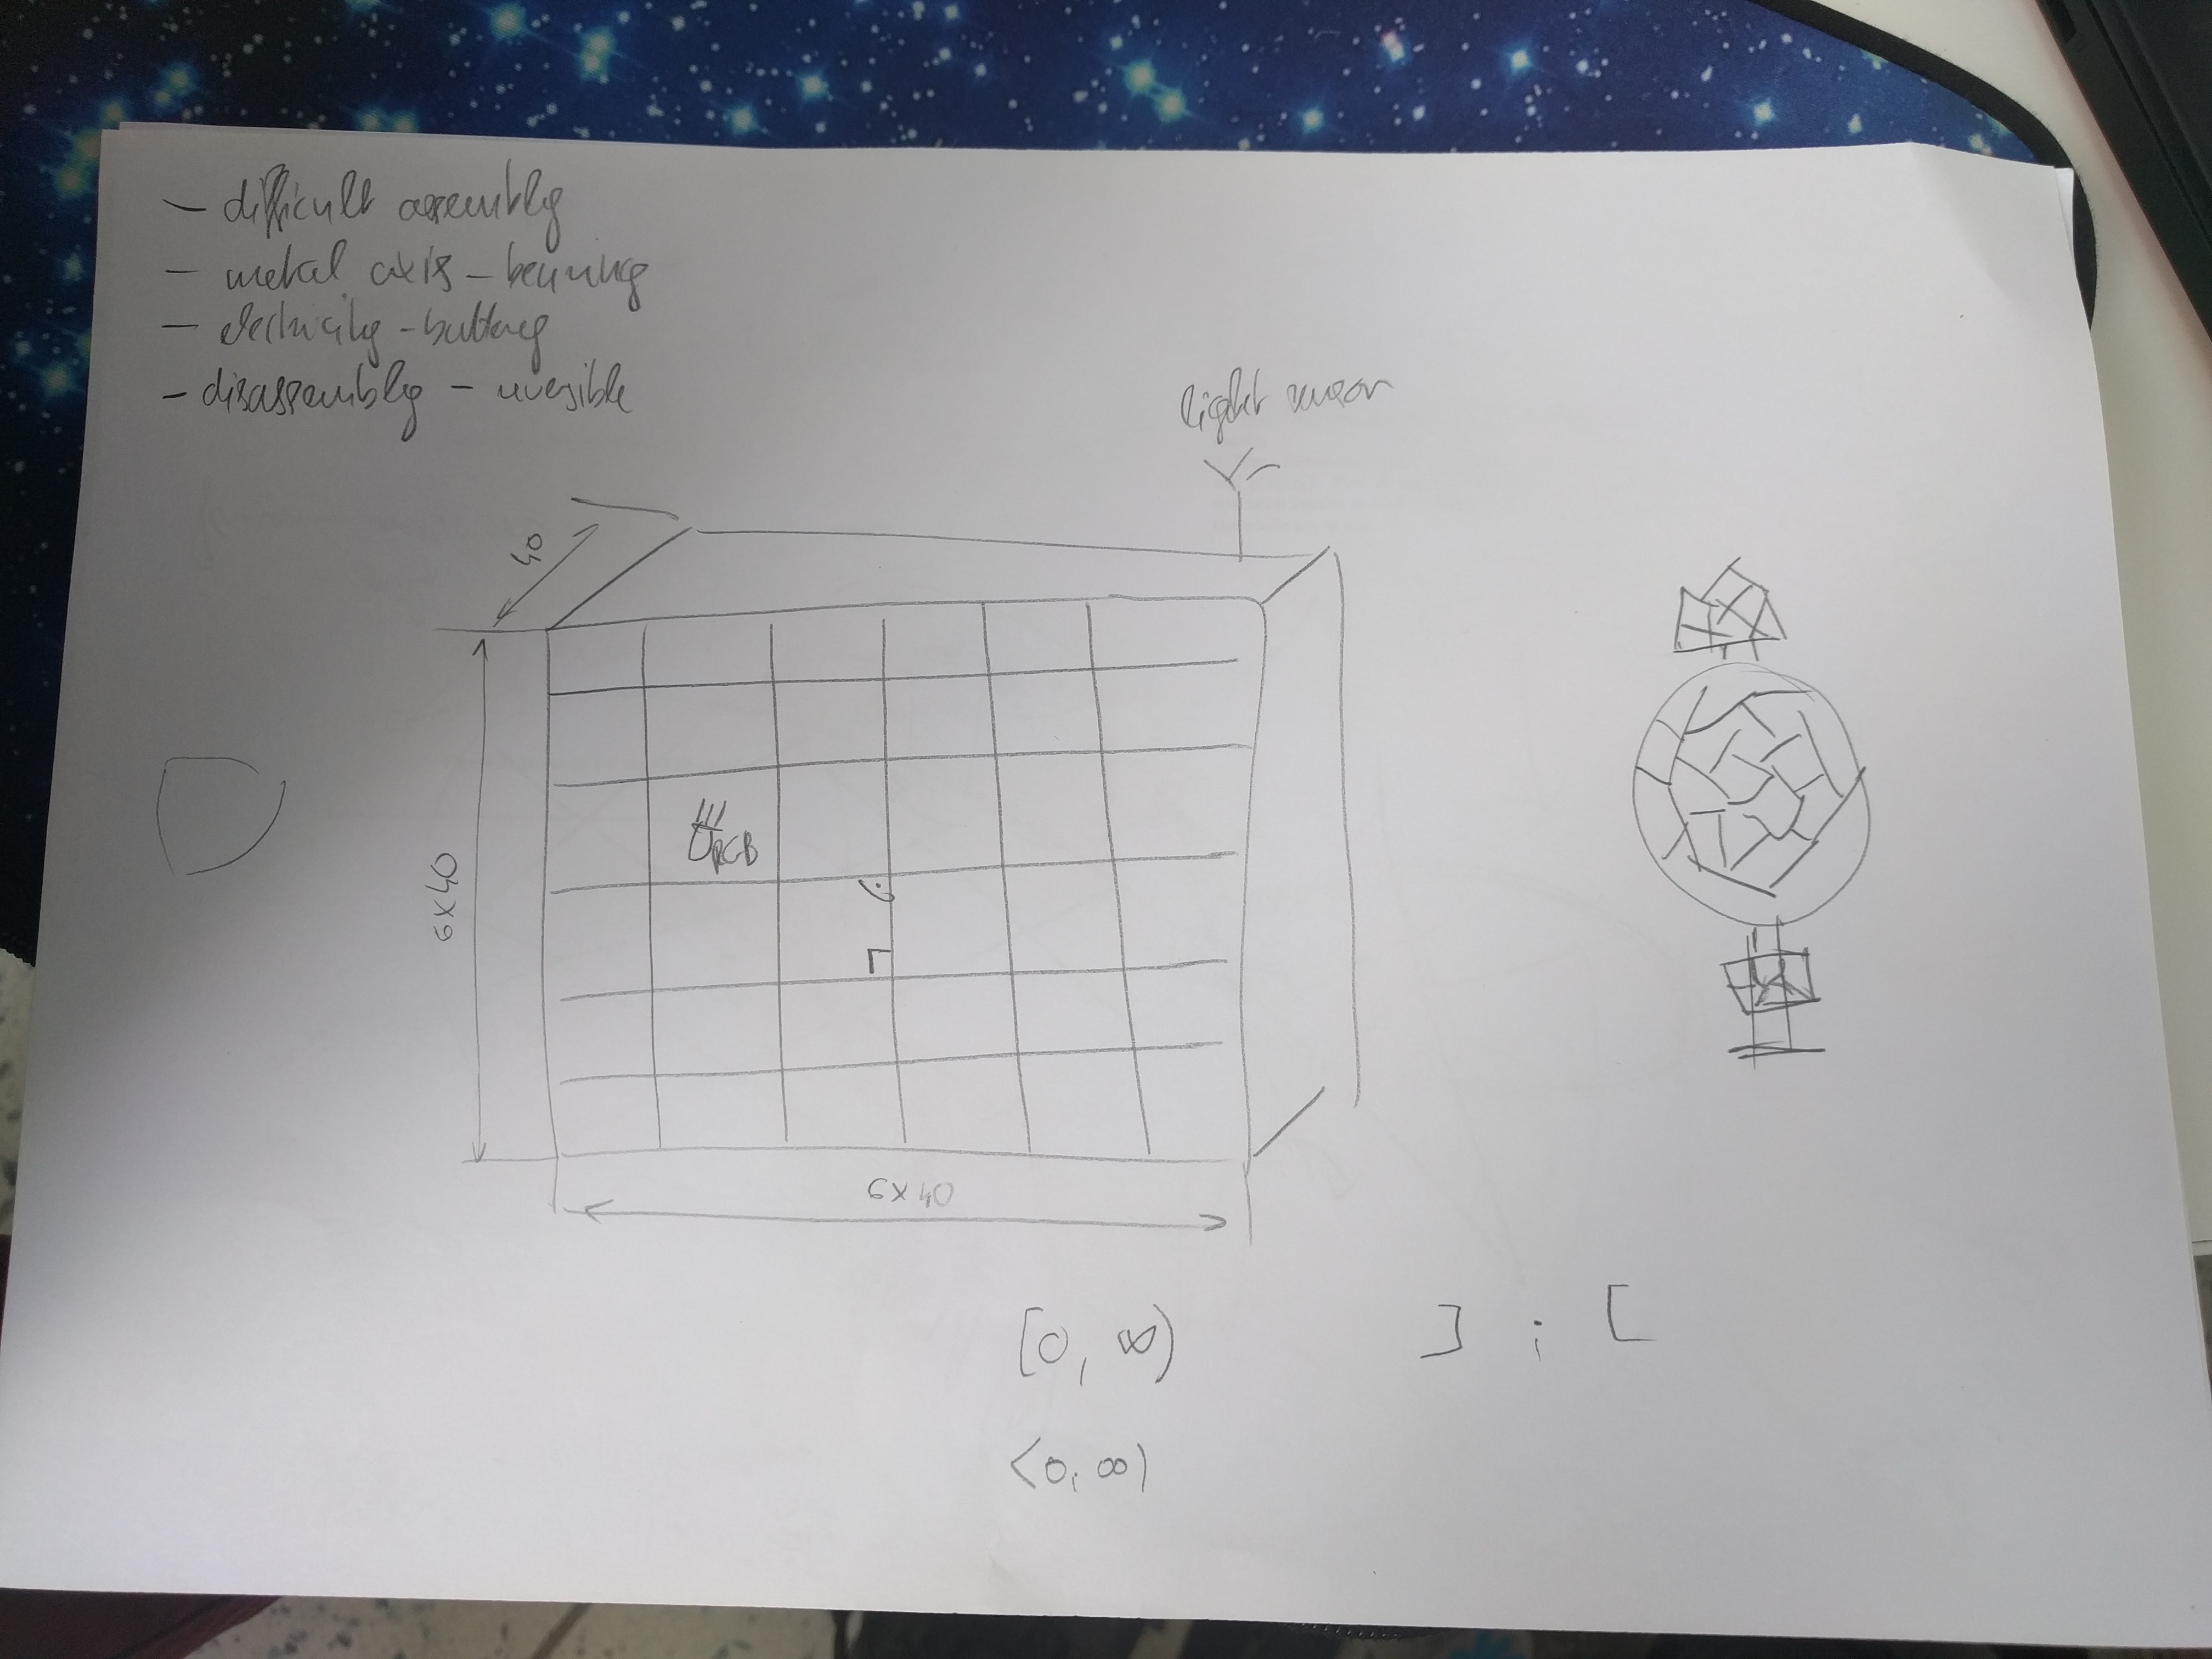 - difficult assembly
- metal axis - bearing
- electricity - battery
- disassembly - reversible
light sensor
40
RGB
6x40
6x40
[0, ∞) ] ; [
<0; ∞)